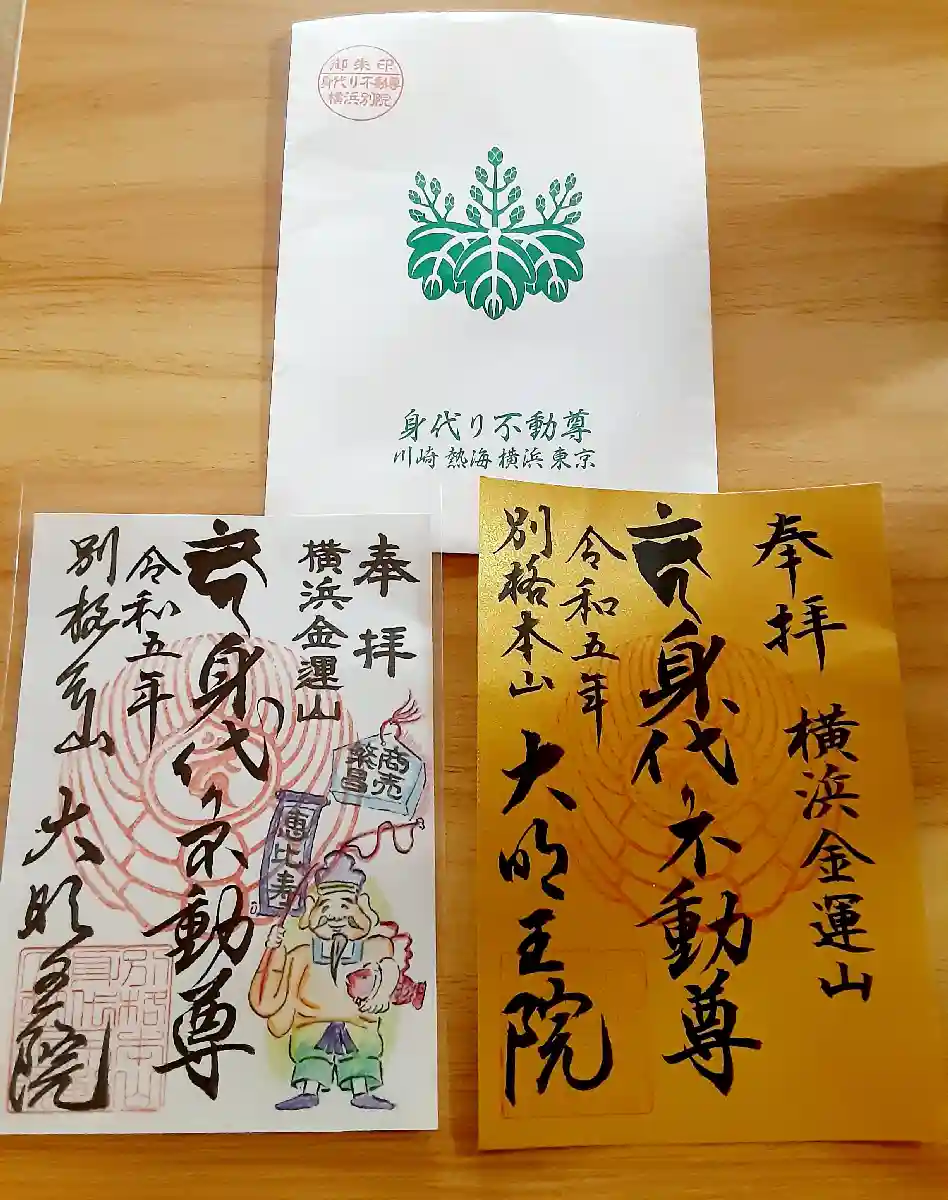 御朱印
身代り不動尊
横浜別院
身代り不動尊
川崎 熱海 横浜 東京
奉拝
横浜金運山
身代り不動尊
令和五年
別格本山
大明王院
商売
繁昌
恵比寿
奉拝
横浜金運山
身代り不動尊
令和五年
別格本山
大明王院